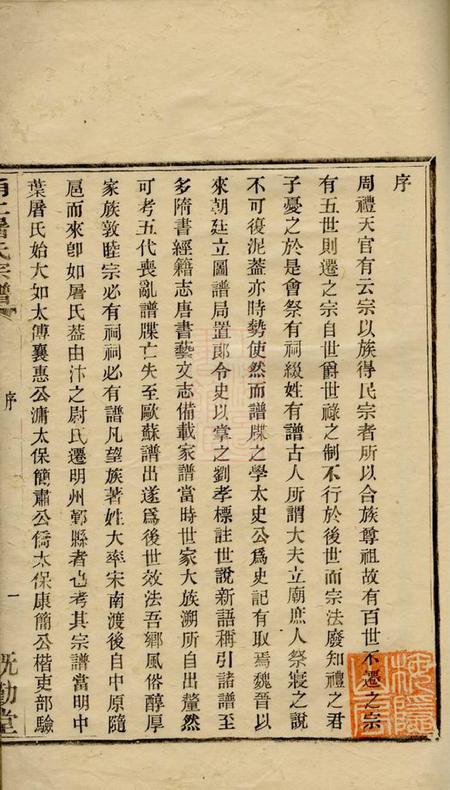 序
周禮天官有云宗以族得民宗者所以合族尊祖故有百世不遷之宗
有五世則遷之宗自世爵世祿之制不行於後世而宗法廢知禮之君
子憂之於是會祭有祠綴姓有譜古人所謂大夫立廟庶人祭寢之說
不可復泥蓋亦時勢使然而譜牒之學太史公爲史記有取焉魏晉以
來朝廷立圖譜局置郎令史以掌之劉孝標註世說新語稱引諸譜至
多隋書經籍志唐書藝文志備載家譜當時世家大族溯所自出釐然
可考五代喪亂譜牒亡失至歐蘇譜出遂爲後世效法吾鄉風俗醇厚
家族敦睦宗必有祠祠必有譜凡望族著姓大率宋南渡後自中原隨
扈而來卽如屠氏葢由汴之尉氏遷明州鄞縣者也考其宗譜當明中
葉屠氏始大如太傅襄惠公滽太保簡肅公僑太保康簡公楷吏部驗
甬上屠氏宗譜
序
一
既勤堂